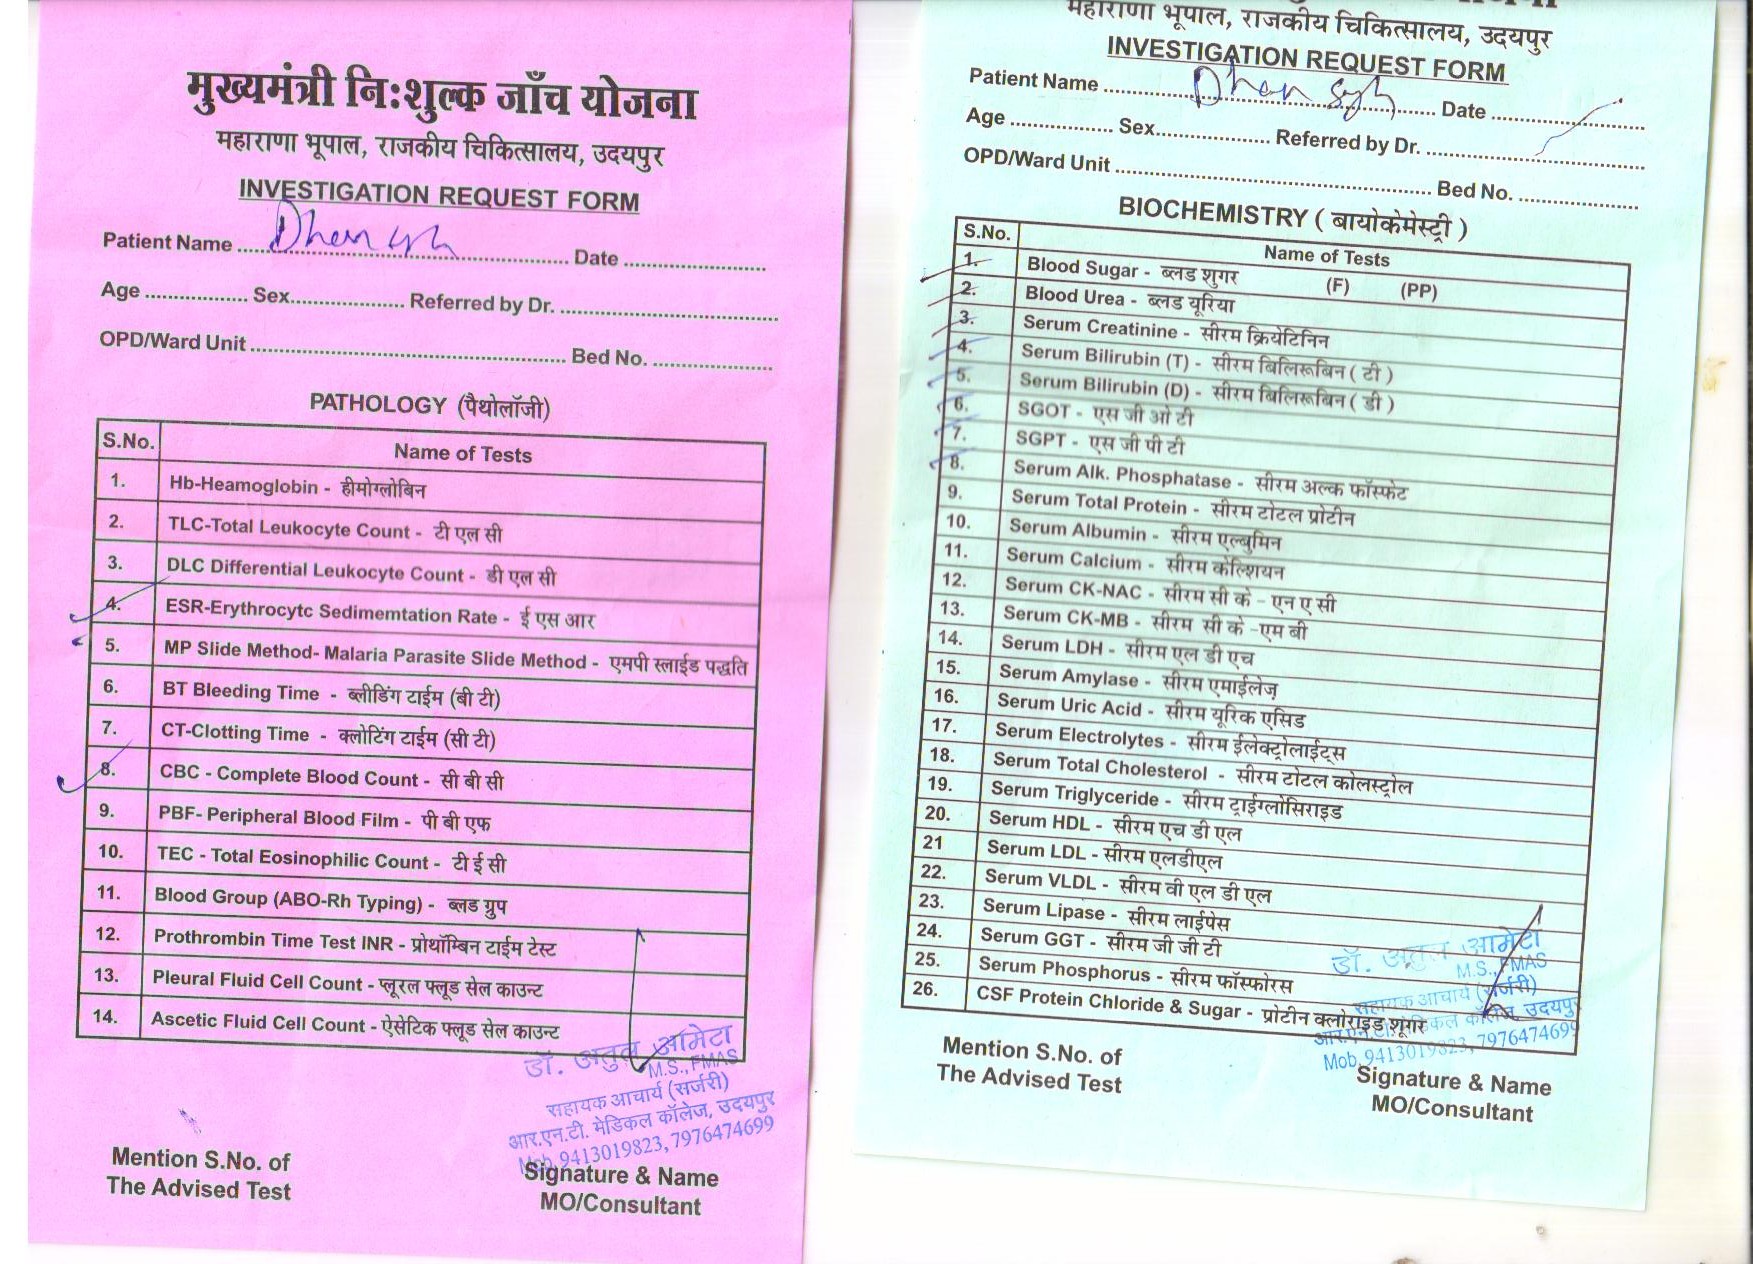 मुख्यमंत्री नि:शुल्क जाँच योजना
महाराणा भूपाल, राजकीय चिकित्सालय, उदयपुर
INVESTIGATION REQUEST FORM
Patient Name ........ Dhan ........ Date ........
Age ........ Sex........ Referred by Dr. ........
OPD/Ward Unit ........ Bed No. ........
PATHOLOGY (पैथोलॉजी)
S.No. Name of Tests
1. Hb-Heamoglobin - हीमोग्लोबिन
2. TLC-Total Leukocyte Count - टी एल सी
3. DLC Differential Leukocyte Count - डी एल सी
4. ESR-Erythrocytc Sedimemtation Rate - ई एस आर
5. MP Slide Method- Malaria Parasite Slide Method - एमपी स्लाईड पद्धति
6. BT Bleeding Time - ब्लीडिंग टाईम (बी टी)
7. CT-Clotting Time - क्लोटिंग टाईम (सी टी)
8. CBC - Complete Blood Count - सी बी सी
9. PBF- Peripheral Blood Film - पी बी एफ
10. TEC - Total Eosinophilic Count - टी ई सी
11. Blood Group (ABO-Rh Typing) - ब्लड ग्रुप
12. Prothrombin Time Test INR - प्रोथॉम्बिन टाईम टेस्ट
13. Pleural Fluid Cell Count - प्लूरल फ्लूड सेल काउन्ट
14. Ascetic Fluid Cell Count - ऐसेटिक फ्लूड सेल काउन्ट
डॉ. अतुल आमेटा
M.S., FMAS
सहायक आचार्य (सर्जरी)
आर.एन.टी. मेडिकल कॉलेज, उदयपुर
Mob.9413019823, 7976474699
Mention S.No. of
The Advised Test
Signature & Name
MO/Consultant
महाराणा भूपाल, राजकीय चिकित्सालय, उदयपुर
INVESTIGATION REQUEST FORM
Patient Name ........ Dhan ........ Date ........
Age ........ Sex........ Referred by Dr. ........
OPD/Ward Unit ........ Bed No. ........
BIOCHEMISTRY ( बायोकेमेस्ट्री )
S.No. Name of Tests
1. Blood Sugar - ब्लड शुगर (F) (PP)
2. Blood Urea - ब्लड यूरिया
3. Serum Creatinine - सीरम क्रियेटिनिन
4. Serum Bilirubin (T) - सीरम बिलिरूबिन ( टी )
5. Serum Bilirubin (D) - सीरम बिलिरूबिन ( डी )
6. SGOT - एस जी ओ टी
7. SGPT - एस जी पी टी
8. Serum Alk. Phosphatase - सीरम अल्क फॉस्फेट
9. Serum Total Protein - सीरम टोटल प्रोटीन
10. Serum Albumin - सीरम एल्बुमिन
11. Serum Calcium - सीरम केल्शियन
12. Serum CK-NAC - सीरम सी के - एन ए सी
13. Serum CK-MB - सीरम सी के -एम बी
14. Serum LDH - सीरम एल डी एच
15. Serum Amylase - सीरम एमाईलेज़
16. Serum Uric Acid - सीरम यूरिक एसिड
17. Serum Electrolytes - सीरम ईलेक्ट्रोलाईट्स
18. Serum Total Cholesterol - सीरम टोटल कोलस्ट्रोल
19. Serum Triglyceride - सीरम ट्राईग्लोसिराइड
20. Serum HDL - सीरम एच डी एल
21 Serum LDL - सीरम एलडीएल
22. Serum VLDL - सीरम वी एल डी एल
23. Serum Lipase - सीरम लाईपेस
24. Serum GGT - सीरम जी जी टी
25. Serum Phosphorus - सीरम फॉस्फोरस
26. CSF Protein Chloride & Sugar - प्रोटीन क्लोराइड शूगर
डॉ. अतुल आमेटा
M.S., FMAS
सहायक आचार्य (सर्जरी)
आर.एन.टी. मेडिकल कॉलेज, उदयपुर
Mob.9413019823, 7976474699
Mention S.No. of
The Advised Test
Signature & Name
MO/Consultant